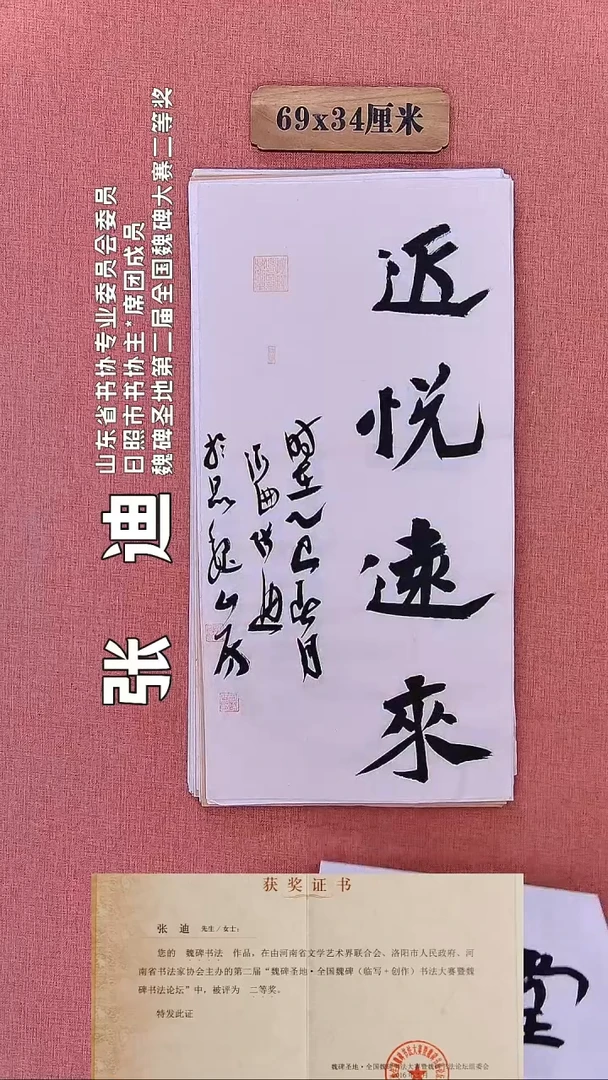 69x34厘米
近悦远來
时在乙巳春月
张迪
山东省书协专业委员会委员
日照市书协主*席团成员
魏碑圣地第二届全国魏碑大赛二等奖
张 迪
获奖证书
张 迪 先生/女士：
您的 魏碑书法 作品，在由河南省文学艺术界联合会、洛阳市人民政府、河
南省书法家协会主办的第二届“魏碑圣地·全国魏碑（临写+创作）书法大赛暨魏
碑书法论坛”中，被评为 二等奖。
特发此证
堂